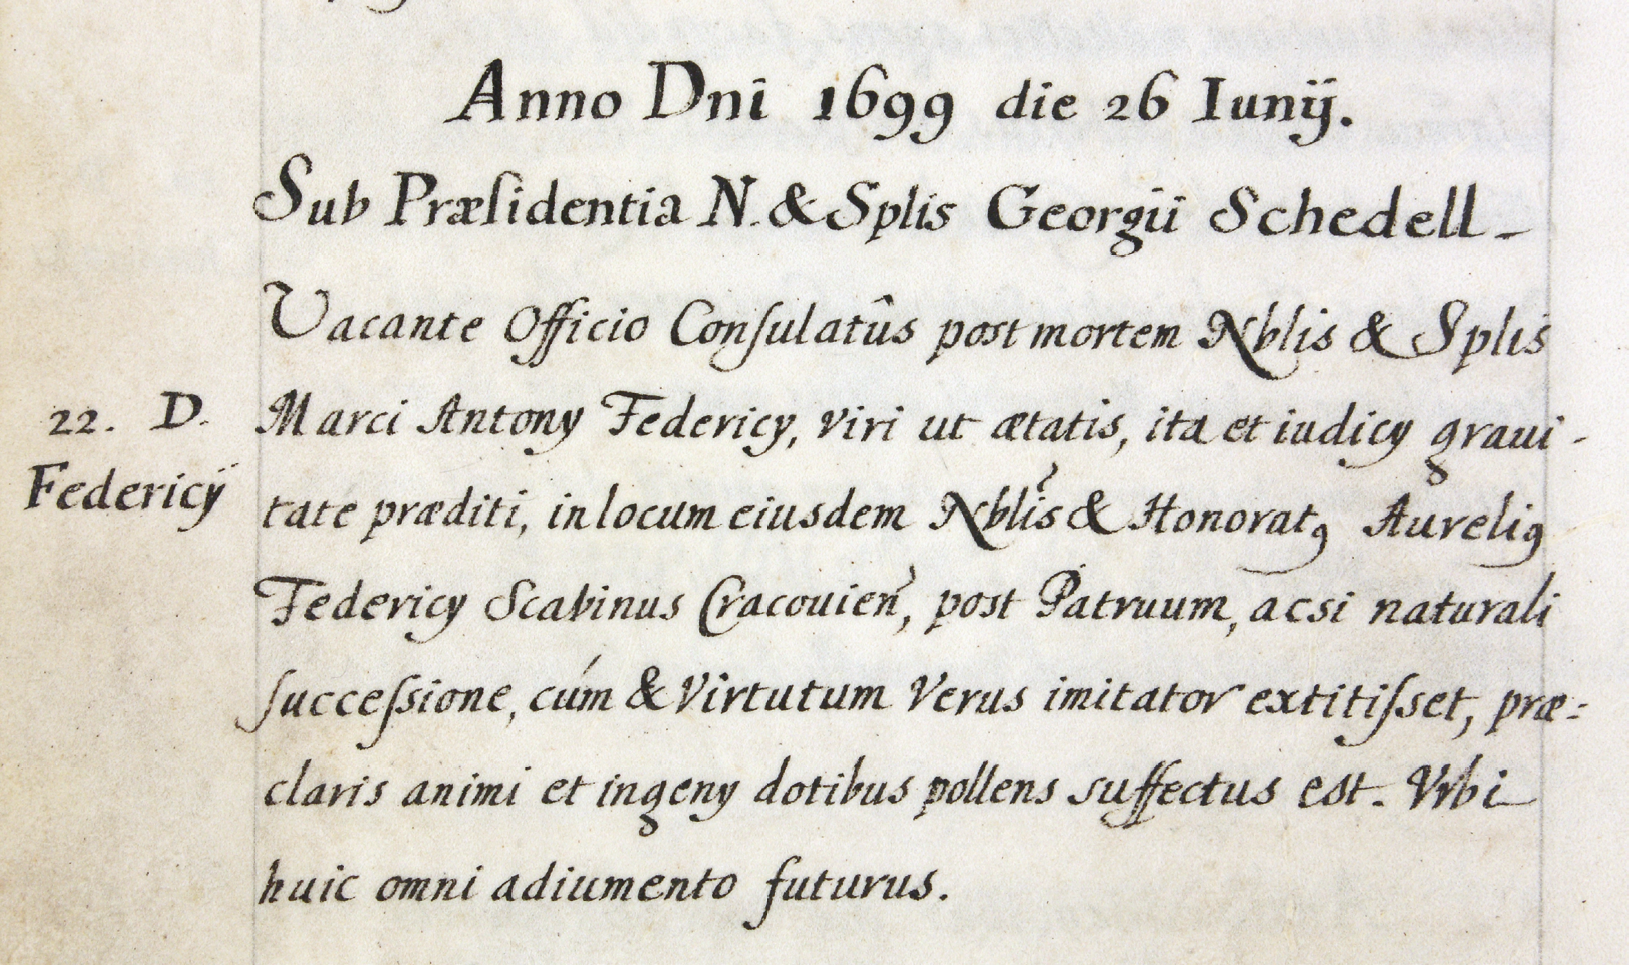 Anno Dni 1699 die 26 Iunij.
Sub Præſidentia N. & Splis Georgii Schedell -
Vacante Officio Conſulatûs post mortem Nblis & Splis
22. D.
Federicÿ
Marci Antony Federicy, viri ut ætatis, ita et iudicy graui-
tate præditi, in locum eiusdem Nblis & Honoratꝯ Aureliꝯ
Federicy Scabinus Cracouien, post Patruum, acsi naturali
ſucceſsione, cúm & Virtutum Verus imitator extitiſset, præ:
claris animi et ingeny dotibus pollens suffectus est. Vrbi
huic omni adiumento futurus.